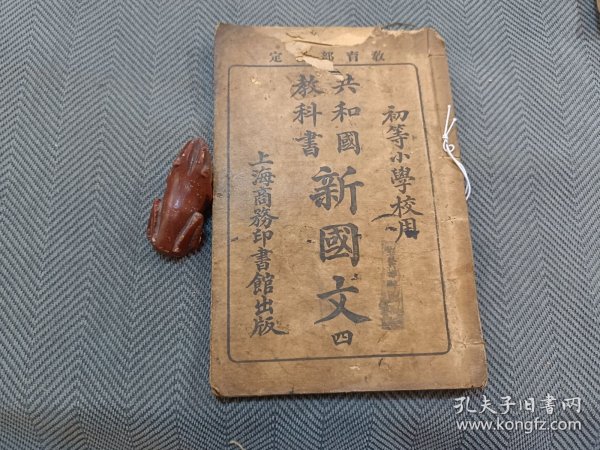 教育部 定
初等小學校用
共和國
教科書
新國文
四
上海商務印書館出版
孔夫子旧书网
www.kongfz.com